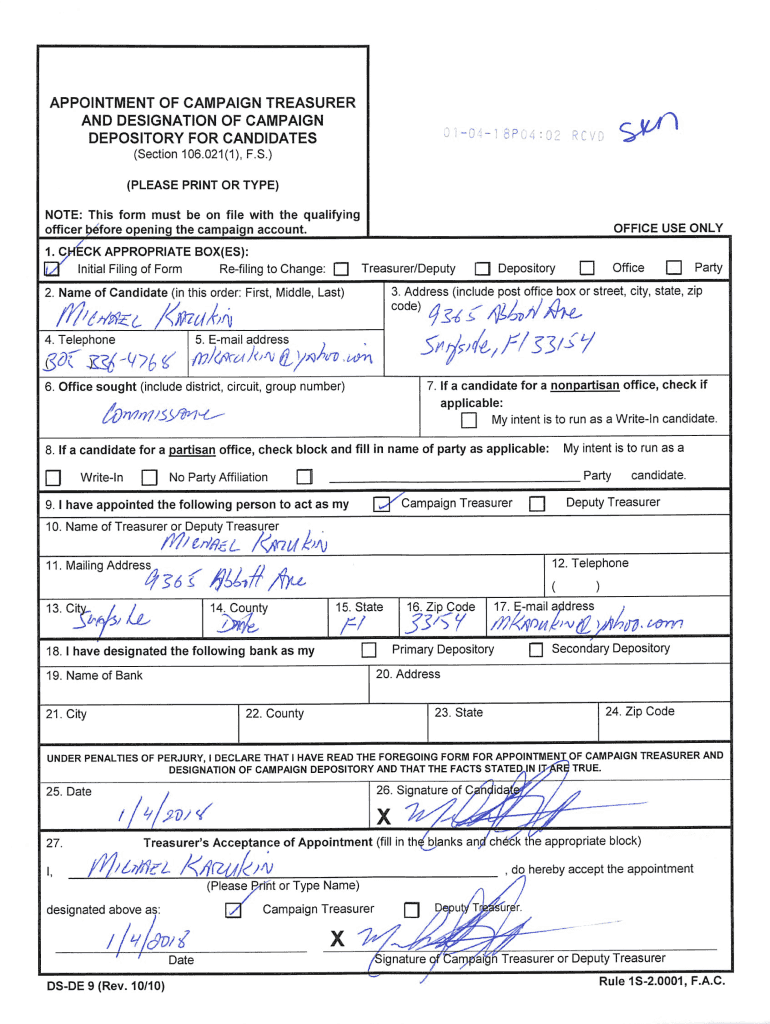 APPOINTMENT OF CAMPAIGN TREASURER
AND DESIGNATION OF CAMPAIGN
DEPOSITORY FOR CANDIDATES
(Section 106.021(1), F.S.)
(PLEASE PRINT OR TYPE)
NOTE: This form must be on file with the qualifying
officer before opening the campaign account.
01-04-18P04:02 RCVD
OFFICE USE ONLY
1. CHECK APPROPRIATE BOX(ES):
Initial Filing of Form Re-filing to Change: Treasurer/Deputy Depository Office Party
2. Name of Candidate (in this order: First, Middle, Last)
MICHAEL KARUKIN
3. Address (include post office box or street, city, state, zip
code) 9365 Abbott Ave
Surfside, Fl 33154
4. Telephone
336-4768
5. E-mail address
mkarukin@yahoo.com
6. Office sought (include district, circuit, group number)
7. If a candidate for a nonpartisan office, check if
applicable:
My intent is to run as a Write-In candidate.
8. If a candidate for a partisan office, check block and fill in name of party as applicable: My intent is to run as a
Write-In No Party Affiliation Party candidate.
9. I have appointed the following person to act as my Campaign Treasurer Deputy Treasurer
10. Name of Treasurer or Deputy Treasurer
MICHAEL KARUKIN
11. Mailing Address
9365 Abbott Ave
12. Telephone
( )
13. City
Surfside
14. County
Dade
15. State
Fl
16. Zip Code
33154
17. E-mail address
MKARUKIN@yAhoo.com
18. I have designated the following bank as my Primary Depository Secondary Depository
19. Name of Bank
20. Address
21. City
22. County
23. State
24. Zip Code
UNDER PENALTIES OF PERJURY, I DECLARE THAT I HAVE READ THE FOREGOING FORM FOR APPOINTMENT OF CAMPAIGN TREASURER AND
DESIGNATION OF CAMPAIGN DEPOSITORY AND THAT THE FACTS STATED IN IT ARE TRUE.
25. Date
1/4/2018
26. Signature of Candidate
X
27. Treasurer's Acceptance of Appointment (fill in the blanks and check the appropriate block)
I, MICHAEL KARUKIN , do hereby accept the appointment
(Please Print or Type Name)
designated above as: Campaign Treasurer Deputy Treasurer.
1/4/2018 X
Date Signature of Campaign Treasurer or Deputy Treasurer
DS-DE 9 (Rev. 10/10) Rule 1S-2.0001, F.A.C.